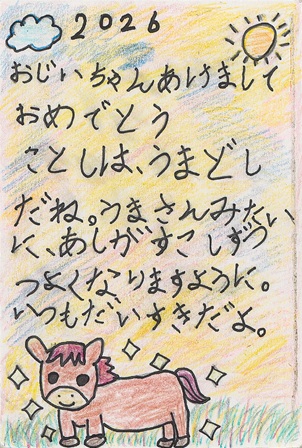 2026
おじいちゃんあけまして
おめでとう
ことしは、うまどし
だね。うまさんみたい
に、あしがすこしずつ
つよくなりますように。
いつもだいすきだよ。